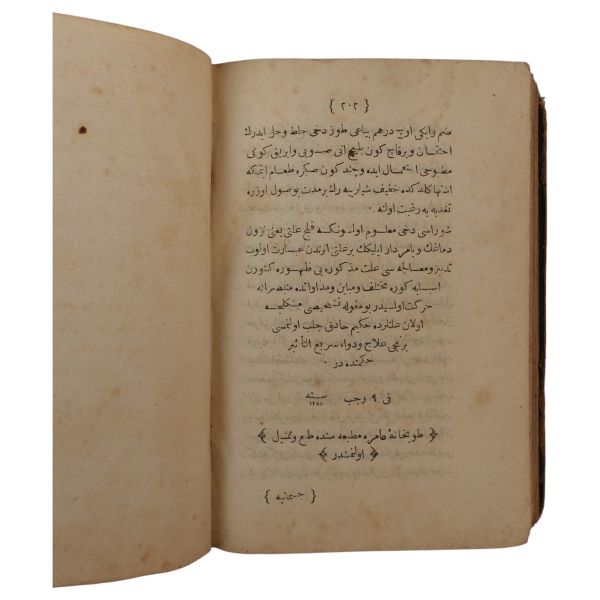 { ٢٠٢ }
ضم وایکی اوچ درهم یناغی طوز دخی خلط وحل ایدرك
احتقان و برقاچ کون صویی وابریق کوکی
مطبوخی استعمال ایده و چند کون صکره طعام ایتمکه
اشتها کلدکده خفیف شیلر یه رك بر مدت بو اصول اوزره
تغدیه یه رغبت اولنه ٠
شوراسی دخی معلوم اوله ونکه فلج علتی یعنی نزول
دماغك و یامردار ایلیکك بر علتی اثرندن عبارت اولوب
تدبیر و معالجه سی علت مذکوره یی ظهوره کتورن
اسبابه کوره مختلف و مباین ومداواتده متبصرانه
حرکت اولنمسیدر بومقوله تشخیصی مشکلجه
اولان علتلرده حکیم حاذق جلب اولنمسی
برنجی علاج ودواء سریع التأثیر
حکمنده در ٠
فی ٩ رجب سنه ١٢٨٤
﴿ طوبخانهٔ عامره مطبعه سنده طبع و تمثیل ﴾
﴿ اولنمشدر ﴾
{ جسمانیه }